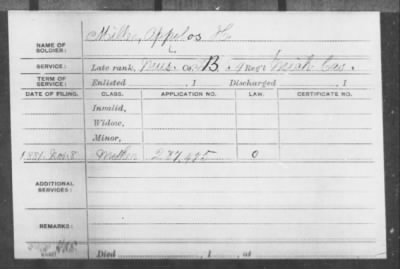 NAME OF SOLDIER: Miller, Appolos H.
SERVICE: Late rank, Mus. Co. B, Reg't Mich Cav.
TERM OF SERVICE: Enlisted , 1 Discharged , 1
DATE OF FILING. CLASS. APPLICATION NO. LAW. CERTIFICATE NO.
Invalid,
Widow,
Minor,
1881 Mother 287,475 0
ADDITIONAL SERVICES:
REMARKS:
Died , 1 , at